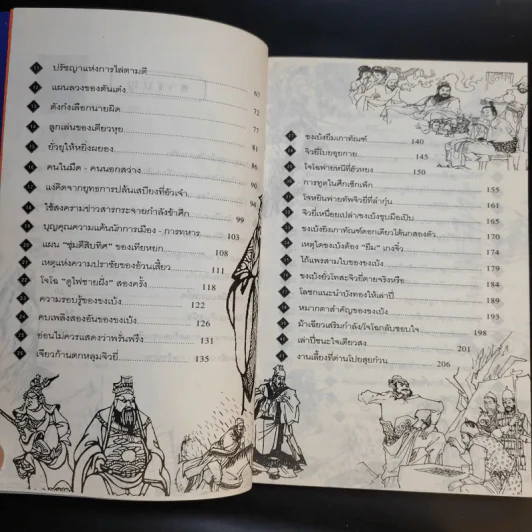 ปรัชญาแห่งการไล่ตามตี 67
แผนลวงของตันเต๋ง 72
ตังก๋งเลือกนายผิด 77
ลูกเล่นของเตียวหุย 81
ยั่วยุให้หยิ่งผยอง 86
คนในมืด - คนนอกสว่าง 90
แง่คิดจากยุทธการปล้นเสบียงที่อัวเจ๋า 94
ใช้สงครามข่าวสารกระจายกำลังข้าศึก 99
บุญคุณความแค้นนักการเมือง - การทหาร 103
แผน "ซุ่มตีสิบทิศ" ของเทียหยก 108
เหตุแห่งความปราชัยของอ้วนเสี้ยว 111
โจโฉ "ดูไฟชายฝั่ง" สองครั้ง 118
ความรอบรู้ของขงเบ้ง 122
คบเพลิงสองอันของขงเบ้ง 126
อ่อนไม่ควรแสดงว่าพรั่นพรึง 131
เจียวก้านตกหลุมจิวยี่ 135
ขงเบ้งยืมเกาทัณฑ์ 140
จิวยี่โบยอุยกาย 145
โจโฉพ่ายหนีที่ฮัวหยง 150
การทูตในศึกเซ็กเพ็ก 155
โจหยินพ่ายทัพจิวยี่ที่ลำกุ๋น 161
จิวยี่เหนื่อยเปล่าขงเบ้งชุบมือเปิบ 165
ขงเบ้งยิงเกาทัณฑ์ดอกเดียวได้นกสองตัว 170
เหตุใดขงเบ้งต้อง "ยืม" เกงจิ๋ว 174
ไถ้แพรสามใบของขงเบ้ง 179
ขงเบ้งยั่วโทสะจิวยี่ตายจริงหรือ 184
โลซกแนะนำบังทองให้เล่าปี่ 189
หมากตาสำคัญของขงเบ้ง 193
ม้าเฉียวเสริมกำลังโจโฉกลับชอบใจ 198
เล่าปี่ชนะใจเตียวสง 201
งานเลี้ยงที่ด่านโปยสุยก๋วน 206